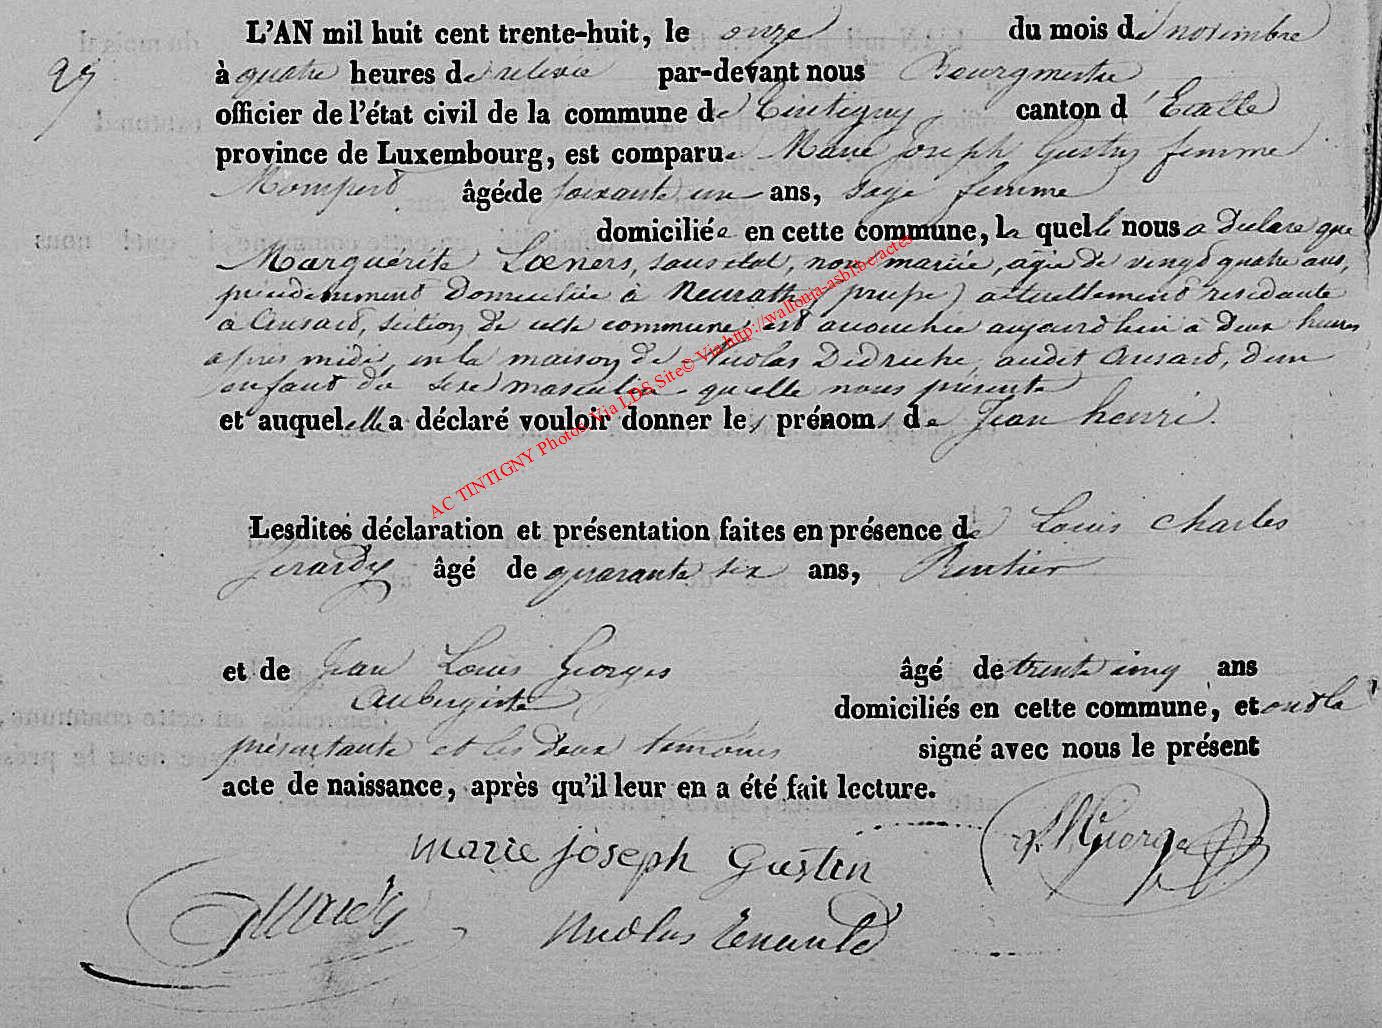 L'AN mil huit cent trente-huit, le onze du mois de novembre
à quatre heures de relevée par-devant nous Bourgmestre
officier de l'état civil de la commune de Tintigny, canton d'Etalle
province de Luxembourg, est comparue Marie Joseph Gustin femme
âgée de soixante un ans, sage femme
domiciliée en cette commune, laquelle nous a déclaré que
Marguerite Lœners, sans état, non mariée, agée de vingt quatre ans,
précédemment domiciliée à (prusse) actuellement residante
à Ansart, section de cette commune, est accouchée aujourd'hui à deux heures
après midi, en la maison de Nicolas audit Ansart, d'un
enfant du sexe masculin qu'elle nous présente
et auquel elle a déclaré vouloir donner les prénoms de Jean henri.
Lesdites déclaration et présentation faites en présence de Louis Charles
Gerardy âgé de quarante six ans, Rentier
et de Jean Louis Georges âgé de trente cinq ans
Aubergiste, domiciliés en cette commune, et ont la
présentante et les deux témoins signé avec nous le présent
acte de naissance, après qu'il leur en a été fait lecture.
marie joseph Gustin
Georges
Nicolas
AC TINTIGNY Photos Via LDS Site© Via http://wallonia-asbl.be/actes